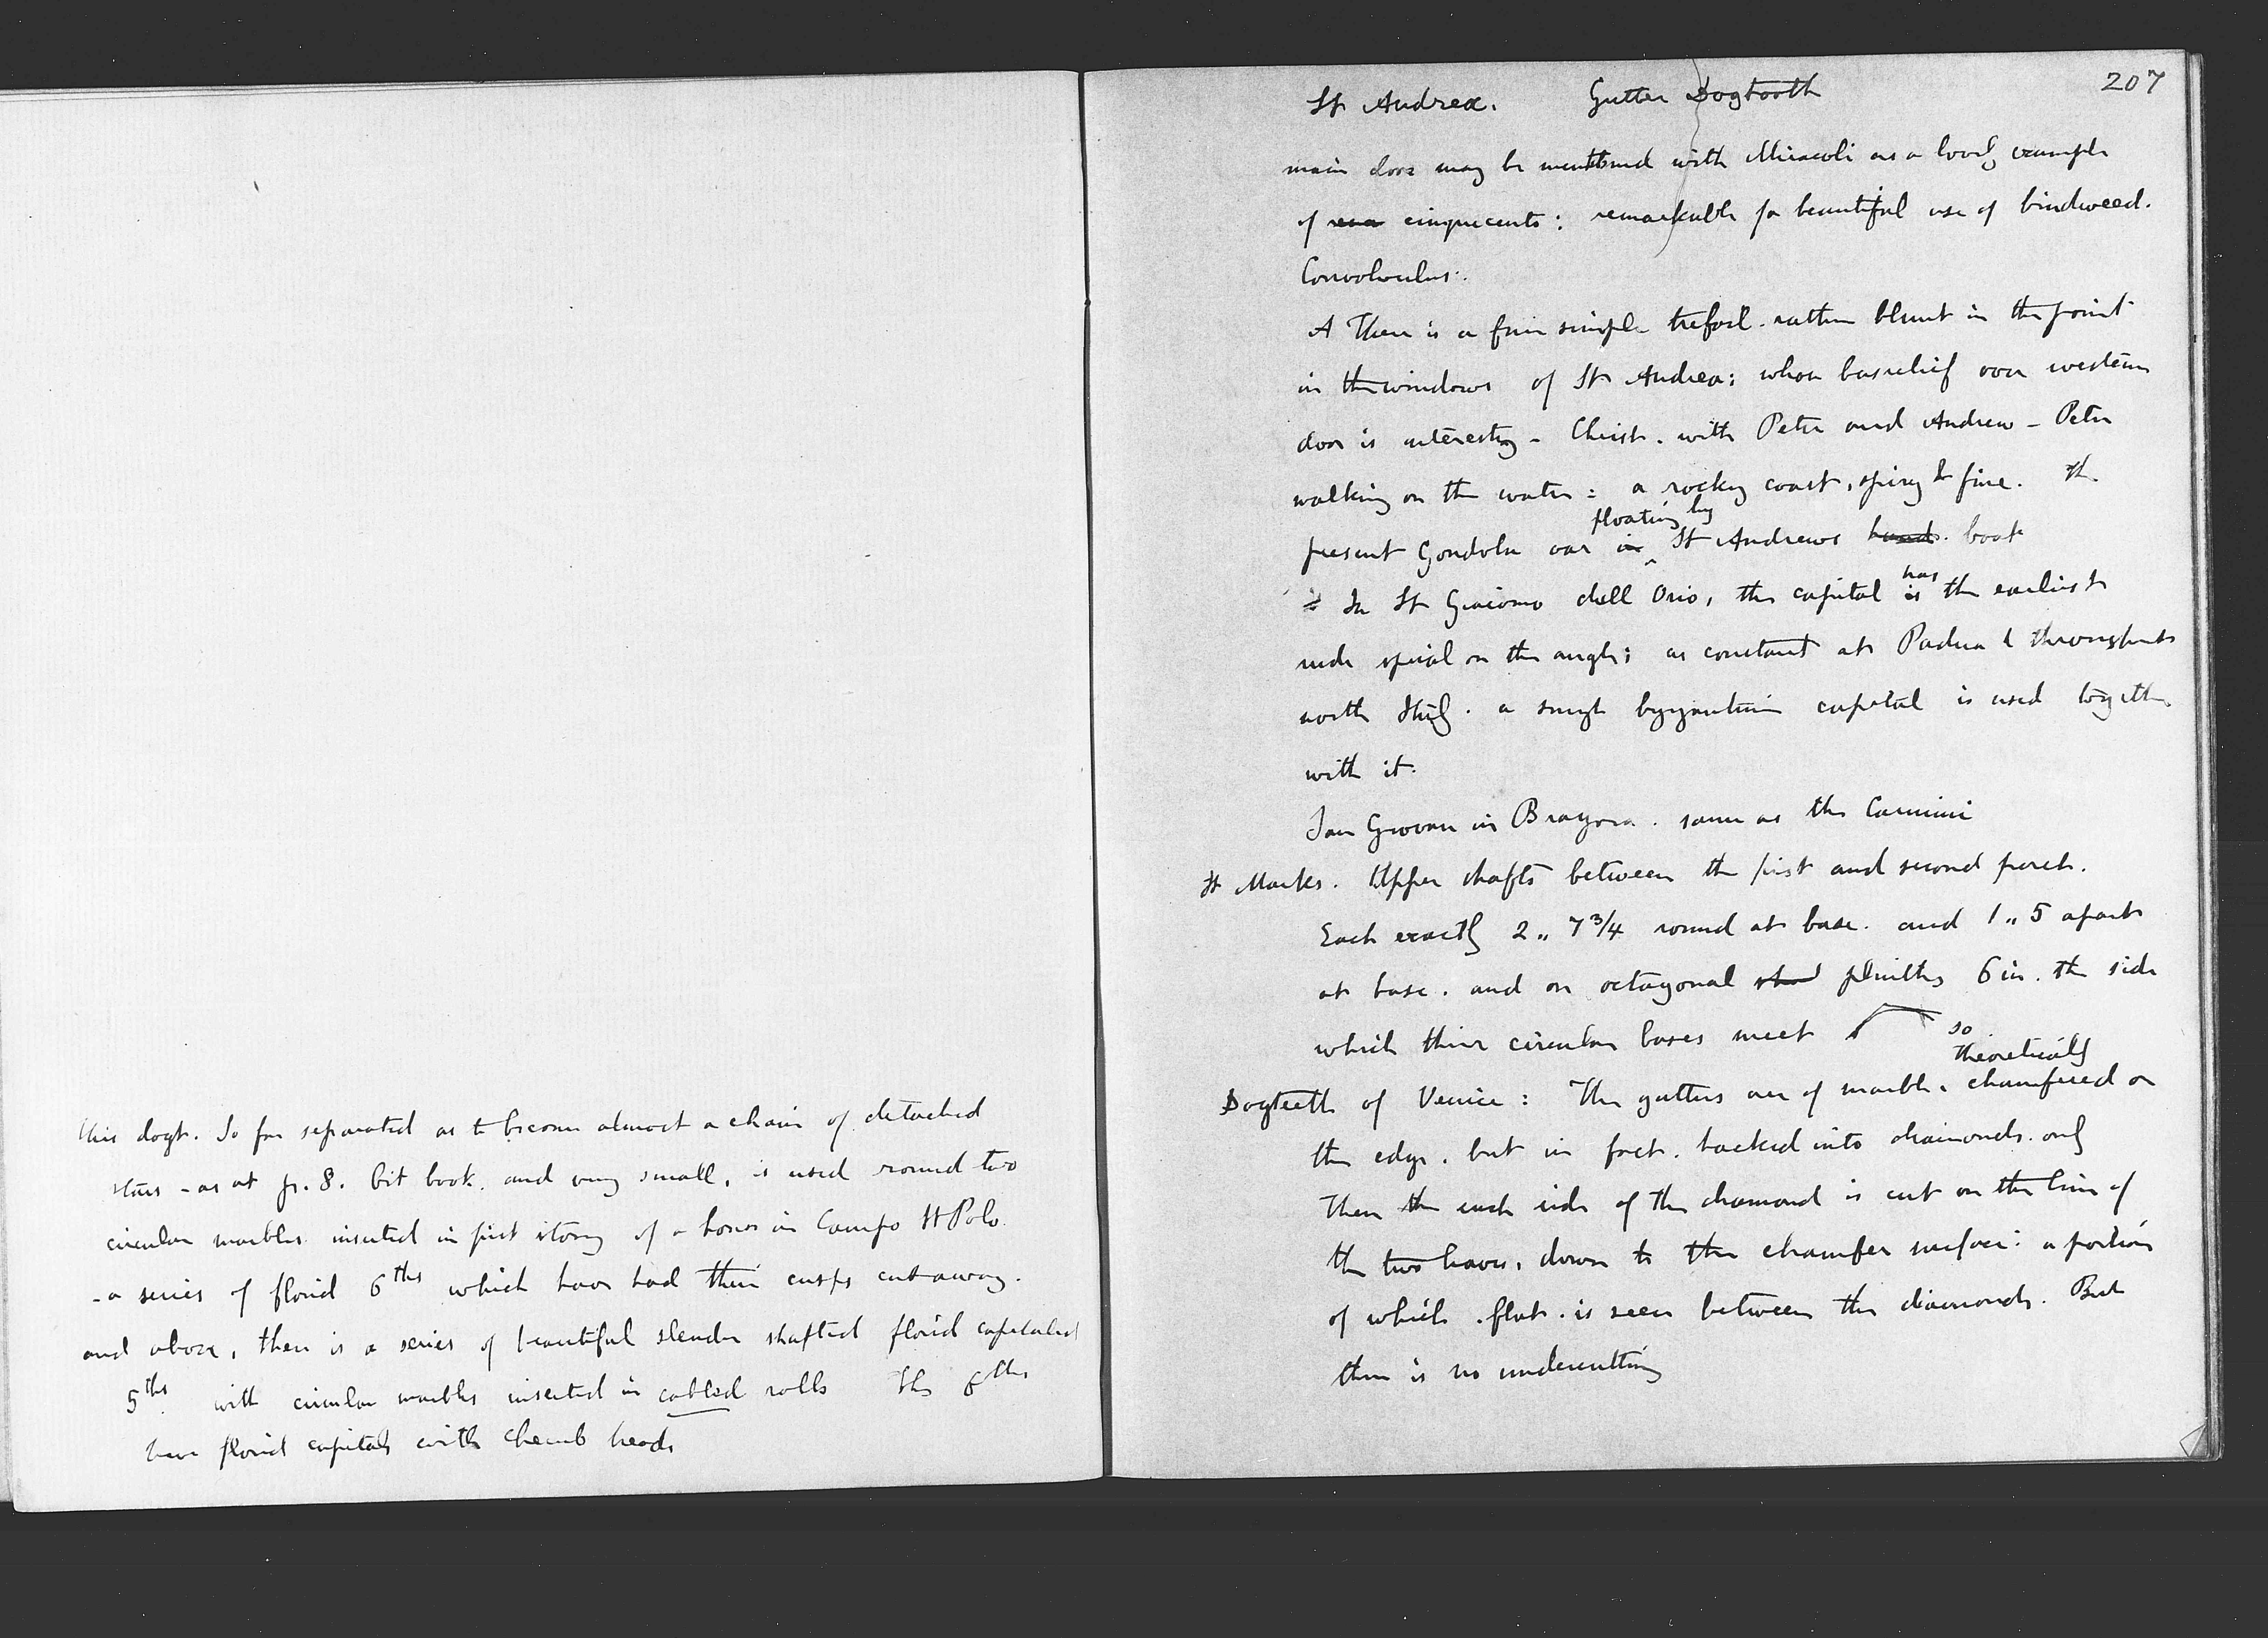 this dogt. So far separated as to become almost a chain of detached
stars - as at p. 8. bit book. and very small, is used round two
circular marbles inserted in first story of a house in Campo St Polo.
- a series of florid 6ths which have had their cusps cut away.
and above, there is a series of beautiful slender shafted florid capitaled
5ths with circular marbles inserted in cabled rolls The 6ths
have florid capitals with cherub heads
207
St Andrea. Gutter Dogtooth
main door may be mentioned with Miracoli as a lovely example
of cinquecento: remarkable for beautiful use of bindweed.
Convolvulus:.
A There is a fine simple trefoil. rather blunt in the point
in the windows of St Andrea: whose basrelief over western
door is interesting - Christ. with Peter and Andrew - Peter
walking on the water: a rocky coast, spiry & fine. The
floating by
present Gondola oar in St Andrews hand. boat
has
= In St Giacomo dell Orio, the capital is the earliest
rude spiral on the angle; as constant at Padua & throughout
north Italy. a single byzantine capital is used together
with it.
San Giovan in Bragora. same as the Carmini
St Marks. Upper shafts between the first and second porch.
Each exactly 2 .. 7 3/4 round at base. and 1 .. 5 apart
at base. and on octagonal plinths 6 in. the side
which their circular bases meet
so
theoretically
Dogteeth of Venice: The gutters are of marble. chamfered on
the edge. but in fact. hacked into diamonds. only
Then the each side of the diamond is cut on the line of
the two leaves, down to the chamfer surface: a portion
of which. flat. is seen between the diamonds. But
there is no undercutting